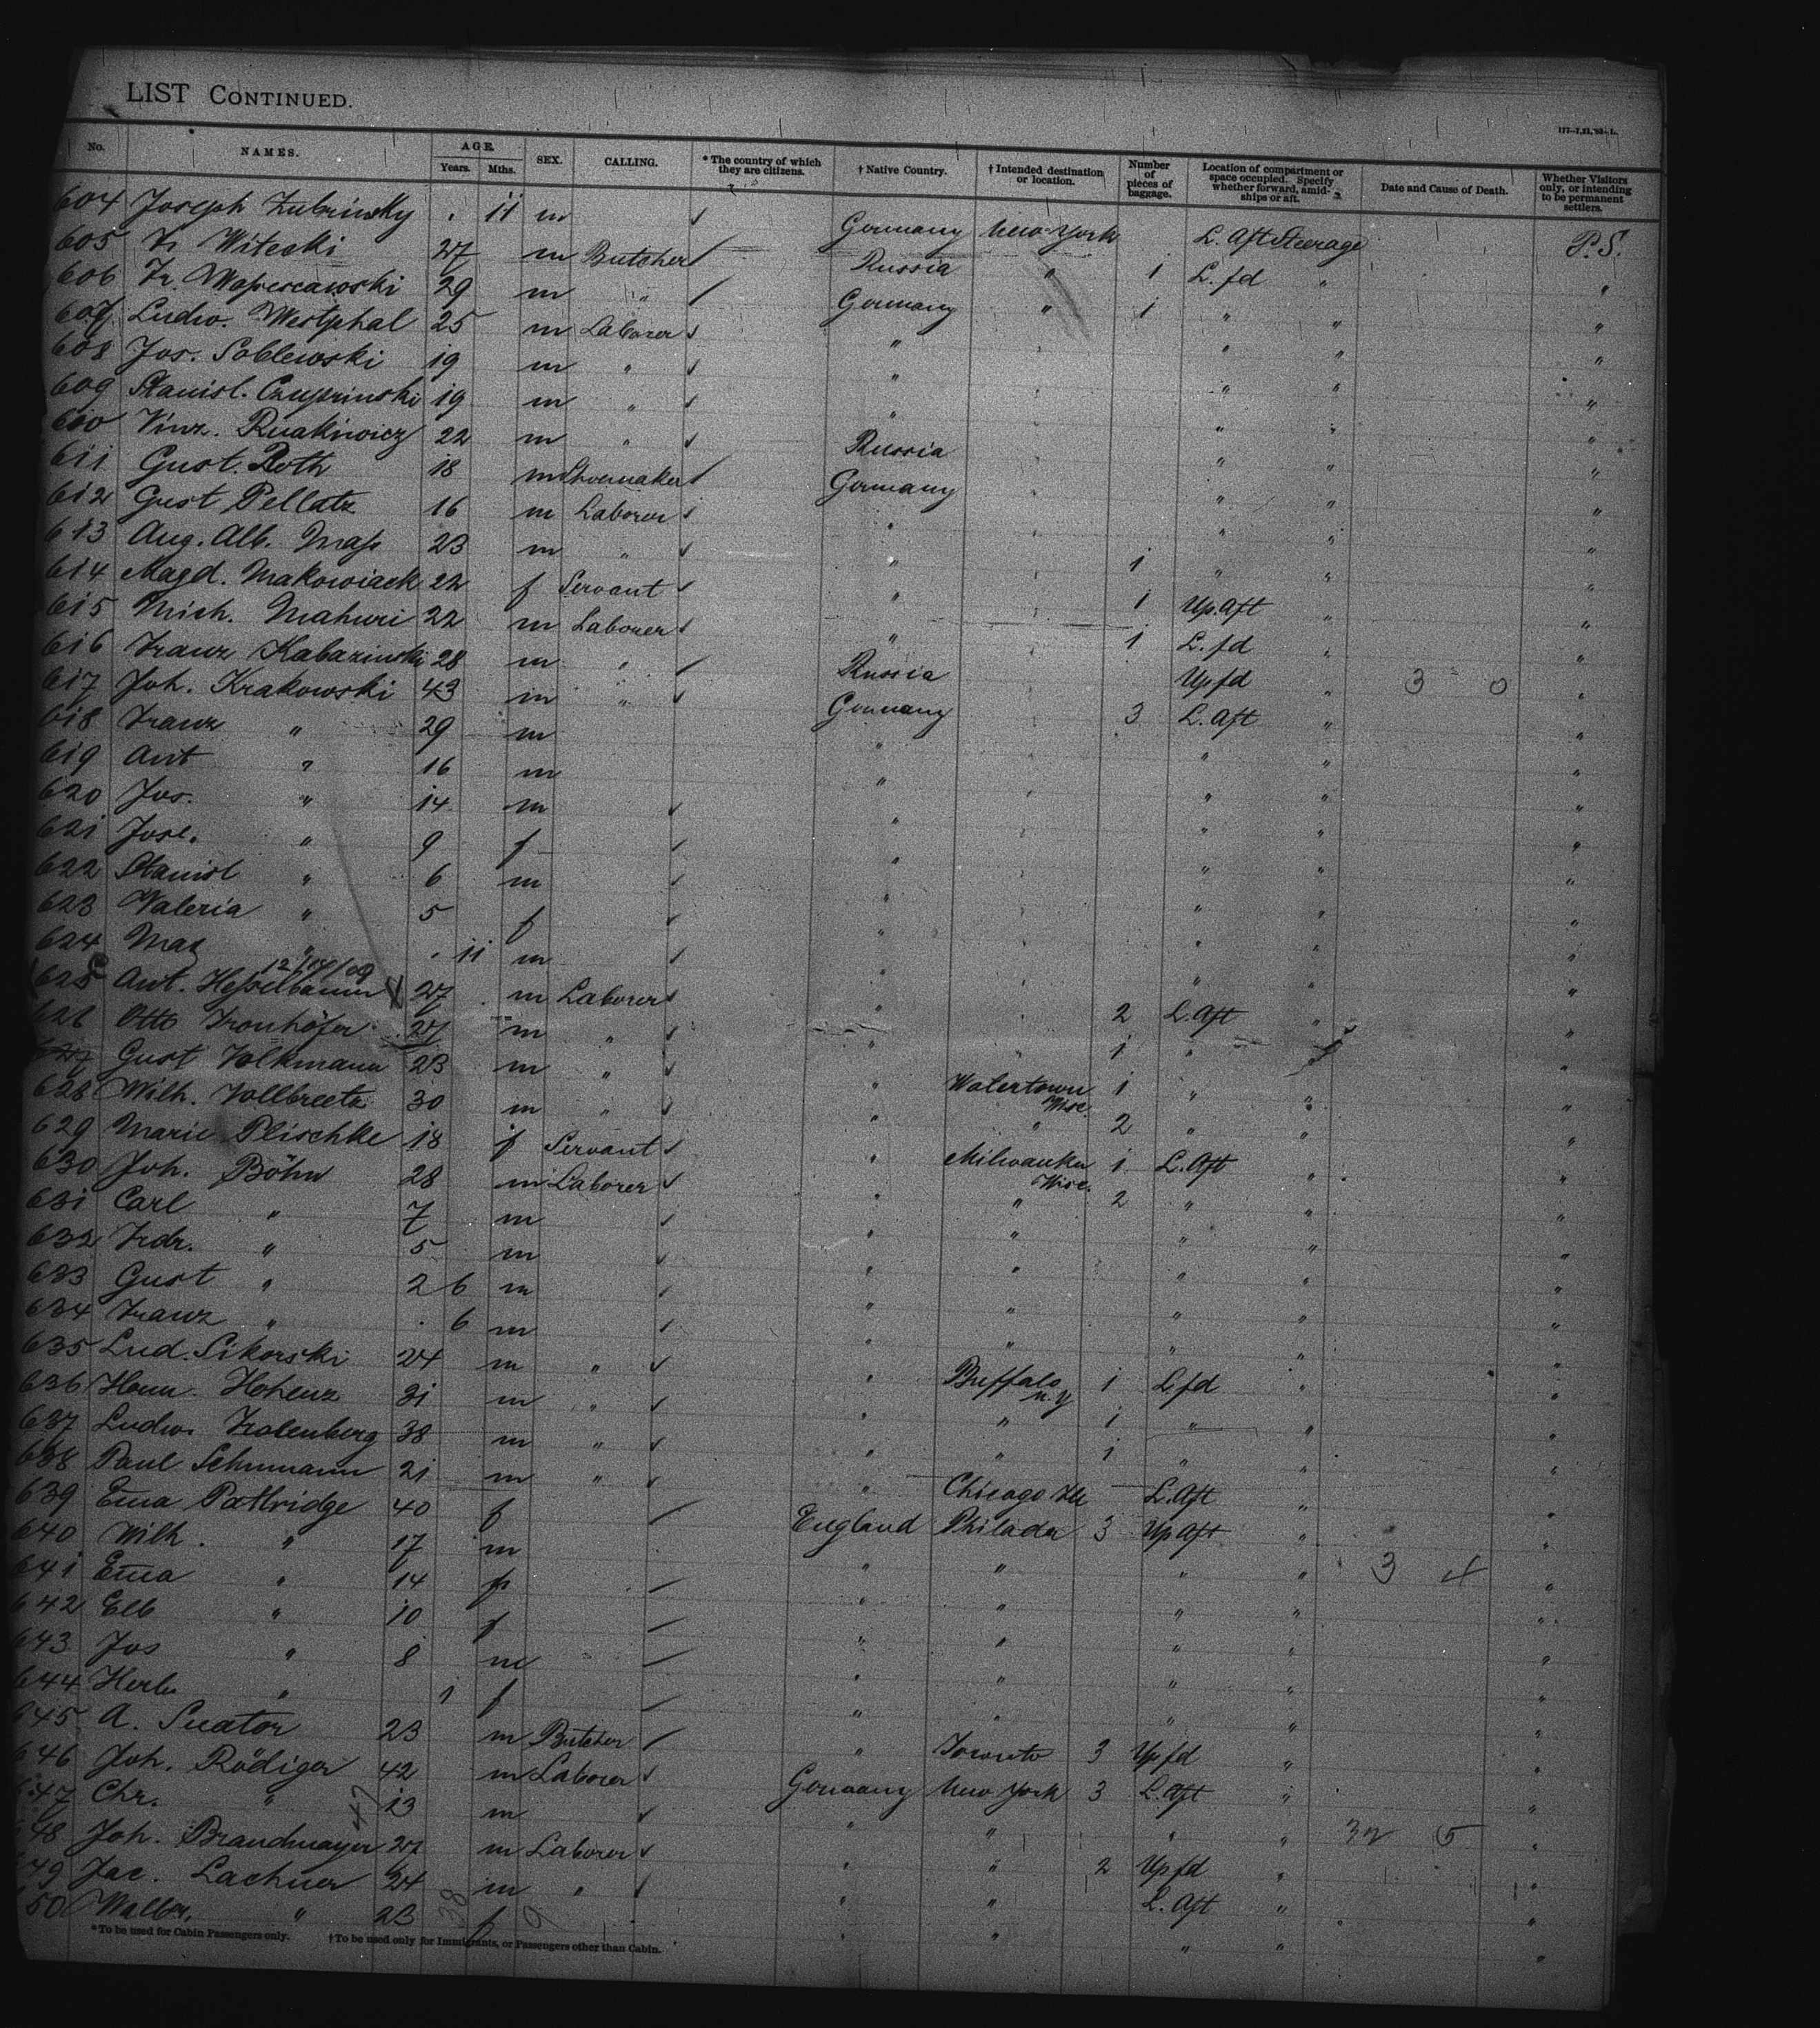 LIST CONTINUED.
177—7,21,'93—L.
No. NAMES. AGE. Years. Mths. SEX. CALLING. * The country of which they are citizens. † Native Country. † Intended destination or location. Number of pieces of baggage. Location of compartment or space occupied. Specify whether forward, amidships or aft. Date and Cause of Death. Whether Visitors only, or intending to be permanent settlers.
604 Joseph Zubrinsky . 11 m ✓ Germany New York L. Aft Steerage P.S.
605 Witecki 27 m Butcher / Russia " 1 L. fd " "
606 Fr. 29 m " / Germany " 1 " " "
607 Ludw. Westphal 25 m Laborer ✓ " " " "
608 Jos. Soblewski 19 m " ✓ " " " "
609 Stanisl. Czuprinski 19 m " ✓ " " " "
610 Vinz. 22 m " ✓ Russia " " "
611 Gust. Roth 18 m Shoemaker / Germany " " "
612 Gust Pellatz 16 m Laborer ✓ " " " "
613 Aug. Alb. 23 m " ✓ " 1 " " "
614 Magd. Makowiack 22 f Servant ✓ " 1 Up. Aft " "
615 Mich. Mahuri 22 m Laborer ✓ " 1 L. fd " "
616 Franz Kabazinski 28 m " / Russia Up fd " 3 0 "
617 Joh. Krakowski 43 m " ✓ Germany 3 L. Aft " "
618 Franz " 29 m " " " "
619 Ant " 16 m " " " "
620 Jos. " 14 m ✓ " " " "
621 Jose. " 9 f ✓ " " " "
622 Stanisl " 6 m ✓ " " " "
623 Valeria " 5 f ✓ " " " "
624 Max " . 11 m ✓ " " " "
12/14/09
625 Ant. Hesselbaum X 27 m Laborer ✓ " 2 L. Aft " "
626 Otto Fronhöfer 27 m " ✓ " 1 " " "
627 Gust Volkmann 23 m " ✓ " Watertown Wisc. 1 " " "
628 Wilh. Vollbrecta 30 m " ✓ " " 2 " " "
629 Marie Plischke 18 f Servant ✓ " Milwaukee Wisc. 1 L. Aft " "
630 Joh. Böhn 28 m Laborer ✓ " " 2 " " "
631 Carl " 7 m ✓ " " " " "
632 Frdr. " 5 m ✓ " " " " "
633 Gust " 2 6 m ✓ " " " " "
634 Franz " . 6 m ✓ " " " " "
635 Lud. Sikorski 24 m " ✓ " Buffalo N.Y 1 L fd " "
636 Herm. Hohenz 31 m " ✓ " " 1 " " "
637 Ludw. 38 m " ✓ " " 1 " " "
638 Paul Schumann 21 m " ✓ " Chicago Ill L. Aft " "
639 Ema Pattridge 40 f / England Philada 3 Up Aft " "
640 Wilh. " 17 m " " " " 3 4 "
641 Ema " 14 f / " " " " "
642 Elb " 10 f / " " " " "
643 Jos " 8 m / " " " " "
644 Herb " 1 f / " " " " "
645 A. Suator 23 m Butcher / " Toronto 3 Up fd " "
646 Joh. Rödiger 42 m Laborer ✓ Germany New York 3 L. Aft " "
647 Chr. " 13 m ✓ " " " " 32 5 "
648 Joh. Brandmayer 27 m Laborer ✓ " " 2 Up fd " "
649 Jac. Lachner 24 m " ✓ " " L. Aft " "
650 " 23 f " " " " "
*To be used for Cabin Passengers only. †To be used only for Immigrants, or Passengers other than Cabin.